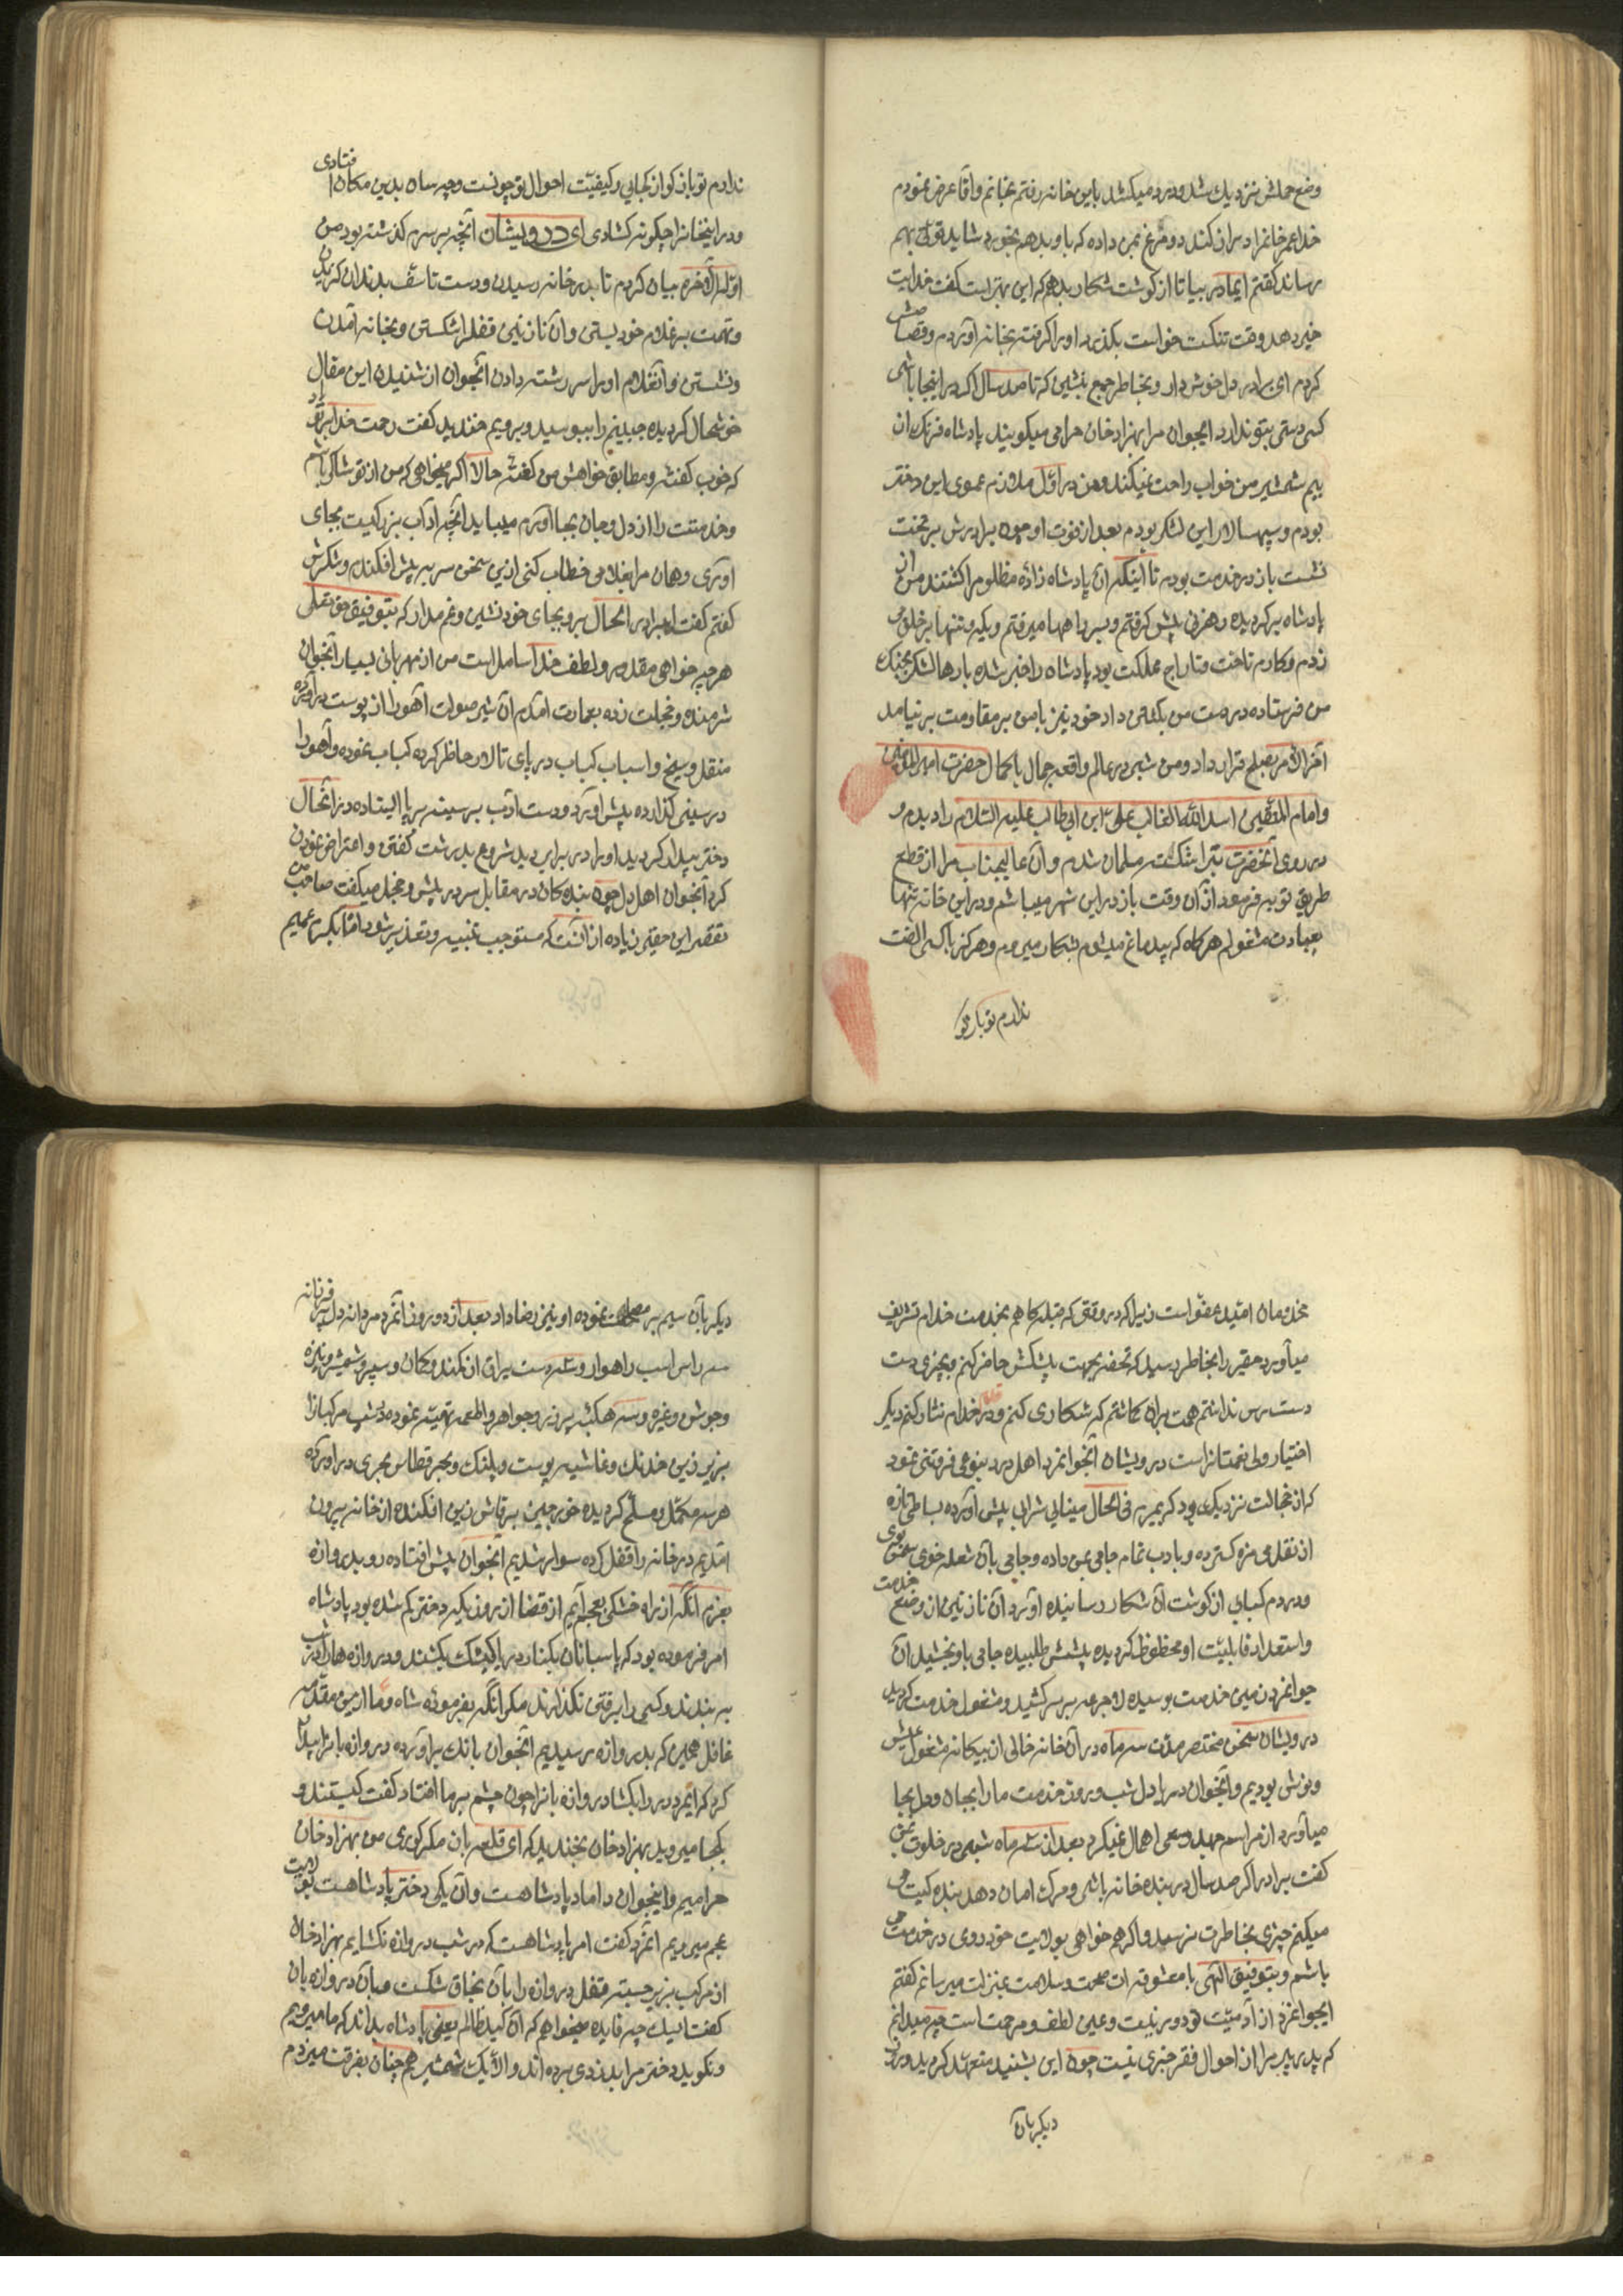 وضع حملش نزدیک شد و درد میکشد باین خانه رفتم بخانم واقا عرض نمودم
خدا عمر خانمرا دراز کند دو مرغ بمن داده که باو بدهم بخورد شاید قوتی بهم
رساند گفتم ایمادر بیا تا از گوشت شکار بدهم که این بهتر است گفت خدایت
خیر دهد وقت تنگست خواست بگذرد اورا گرفته بخانه اوردم و قصاصش
کردم ای برادر دل خوش دار و بخاطر جمع بنشین که تا صد سال اگر در اینجا باشی
کسی دستی بتو ندارد ایجوان مرا بهزاد خان حرامی میگویند پادشاه فرنک از
بیم شمشیر من خواب راحت نمیکند و من در اوّل ملازم عموی این دختر
بودم و سپهسالار این لشکر بودم بعد از فوت او چون برادرش بر تخت
نشست باز در خدمت بودم تا اینکه ان پادشاه زاده مظلوم را کشتند من از
پادشاه برگردیده رهزنی پیش گرفتم و بسر راهها میرفتم و یکه و تنها بر خلق می
زدم و کارم تاخت و تاراج مملکت بود پادشاه را خبر شده بارها لشکر بجنک
من فرستاده درست من بکلی داد خود نیز با من بر مقاومت بر نیامد
آخر الامر بصلح قرار داد و من شبی در عالم واقعه جمال باکمال حضرت امیر المؤمنین
وامام المتقین اسد الله الغالب علی ابن ابی طالب علیه السّلام را دیدم و
در روی آنحضرت تبرا شکسته مسلمان شدم و ان عالیجناب مرا از قطع
طریق توبه فرمود از آن وقت باز در این شهر میباشم و در این خانه تنها
بعبادت مشغولم هرگاه که بیدماغ میشوم بشکار میروم و هرگز با کسی الفت
ندارم تو باز گو
ندارم تو باز گو از کجایی و کیفیّت احوال تو چونست و چه سان بدین مکان افتادی
و در اینخانه را چگونه گشادی ای درویشان آنچه بر سرم گذشته بود من
اوّله الی آخره بیان کردم تا بدر خانه رسیدن و دست تاسّف بدندان گزیدن
و تهمت بر غلام خود بستن و آن نازنین قفل را شکستن و بخانه آمدن
و نشستن و آنغلام اورا سر رشته دادن آنجوان از شنیدن این مقال
خوشحال گردیده جبینم را ببوسید و برویم خندید گفت رحمت خدا بر تو باد
که خوب گفتی و مطابق خواهش من گفتی حالا اگر میخواهی که من از تو شاکر باشم
و خدمتت را از دل و جان بجا آورم میباید آنچه اداب بزرگیست بجای
اوری و همان مرا بغلامی خطاب کنی ازین سخن سر بپیش افکندم و شکرش
گفتم گفت ایبرادر الحال برو بجای خود نشین و غم مدار که بتوفیق حق تعالی
هر چه خواهی مقدور و لطف خدا شامل است من از مهربانی بسیار آنجوان
شرمنده و خجلت زده بعمارت آمدم آن شیر صولت آهو را از پوست در آورده
منقل و سیخ و اسباب کباب در پای تالار حاظر کرده کباب نموده و آهو را
در سینی گذارده پیش اورد و دست ادب بر سینه بر پا ایستاده در آنحال
دختر بیدار گردید اورا در برابر دید شروع بدرشت گفتن و اعتراض نمودن
کرد آنجوان اهل دل چون بنده کان در مقابل سر در پیش و خجل میگفت صاحب من
تقصیر این حقیر زیاده از آنست که مستوجب تنبیه و تعذیر شود امّا بکرم عمیم
مخدومان امّید عفو است زیرا که در وقتی که قبله گاهم بخدمت خدام تشریف
میآورد حقیر را بخاطر رسید که تحفه بجهت پیشکش حاضر کنم و بچیزی دست
دست رس نداشتم همّت بران گماشتم که شکاری کنم و در قدم خدام نثار کنم دیگر
اختیار ولی نعمتانراست درویشان آنجوانمرد اهل درد بنوعی فروتنی نمود
که از خجالت نزدیک بود که بمیرم فی الحال مینایی شرابی پیش آورده بساطی تازه
از نقل می مزه گسترده و بادب تمام جامی بمن داده و جامی بآن شعله خوی سمن بوی
و دردم کبابی از گوشت آن شکار رسانیده آورد آن نازنین از وضع خدمت
واستعداد قابلیّت او محظوظ گردیده پیشش طلبیده جامی باو بخشید آن
جوانمرد زمین خدمت بوسیده لاجرعه بر سر کشید و مشغول خدمت گردید
درویشان سخن مختصر مدّت سه ماه در آن خانه خالی از بیگانه مشغول عیش
و نوش بودیم و آنجوان دریا دل شب و روز خدمت ما را بجان و دل بجا
میآورد از مراسم جهد و سعی اهمال نمیکرد بعد از سه ماه شبی در خلوت بمن
گفت برادر اگر صد سال در بنده خانه باشی و مرک امان دهد بنده گیت می
میکنم چیزی بخاطرت نرسد و اگر هم خواهی بولایت خود روی در خدمت می
باشم و بتوفیق الهی با معشوقه ات صحت و سلامت بمنزلت میرسانم گفتم
ایجوانمرد از آدمیّت تو دور نیست و عین لطف و مرحمت است چه میدانم
که پدر پیر مرا از احوال فقیر خبری نیست چون این بشنید متعهّد گردید و روز
دیگر بآن
دیگر بآن سیم بر مصلحت نموده او نیز رضا داد بعد از دو روز آنمرد مردانه دلیر فرزانه
سه راس اسب راهوار و سه دست یراق از کمند و کمان و سپر و شمشیر و نیزه
و جوشن و غیره و سه هگبه پر زر و جواهر و اطعمه تهیّه نموده شب مرکبانرا
بزیر زین خدنک و غاشیه پوست و پلنک و بحر قطاس بحری در اورده
هر سه مکمّل و مسلّح گردیده خورجین بر قاش زین افکنده از خانه بیرون
امدیم در خانه را قفل کرده سوار شدیم آنجوان پیش افتاده رو بدروازه
بعزم آنکه از راه خشکی بعجم آیم از قضا از روزیکه دختر گم شده بود پادشاه
امر فرموده بود که پاسبانان بکنار دریا کیشک بکشند و دروازه ها را در شب
به بندند و کسی را برفتن نگذارند مگر آنکه بفرموده شاه و ما ازین مقدّمه
غافل همین که بدروازه رسیدیم آنجوان بانک بر آورده دروازه بانرا بیدار
کرد که ایمرد در را بگشا دروازه بانرا چون چشم بر ما افتاد گفت کیستند و
بکجا میروید بهزاد خان بخندید که ای قلعه بان مگر کوری من بهزاد خان
حرامیم و اینجوان داماد پادشاهست و آن یکی دختر پادشاهست بولایت
عجم میرویم آنمرد گفت امر پادشاهست که در شب دروازه نگشایم بهزاد خان
از مرکب بزیر جسته قفل دروازه را بآن نجاق شکست و بآن دروازه بان
گفت اینک چه فایده میخواهم که آن گیدی ظالم یعنی پادشاه بداند که ما میرویم
و نگوید دختر مرا بدزدی برده اند والّا یک شمشیر هم چنان بفرقت میزدم